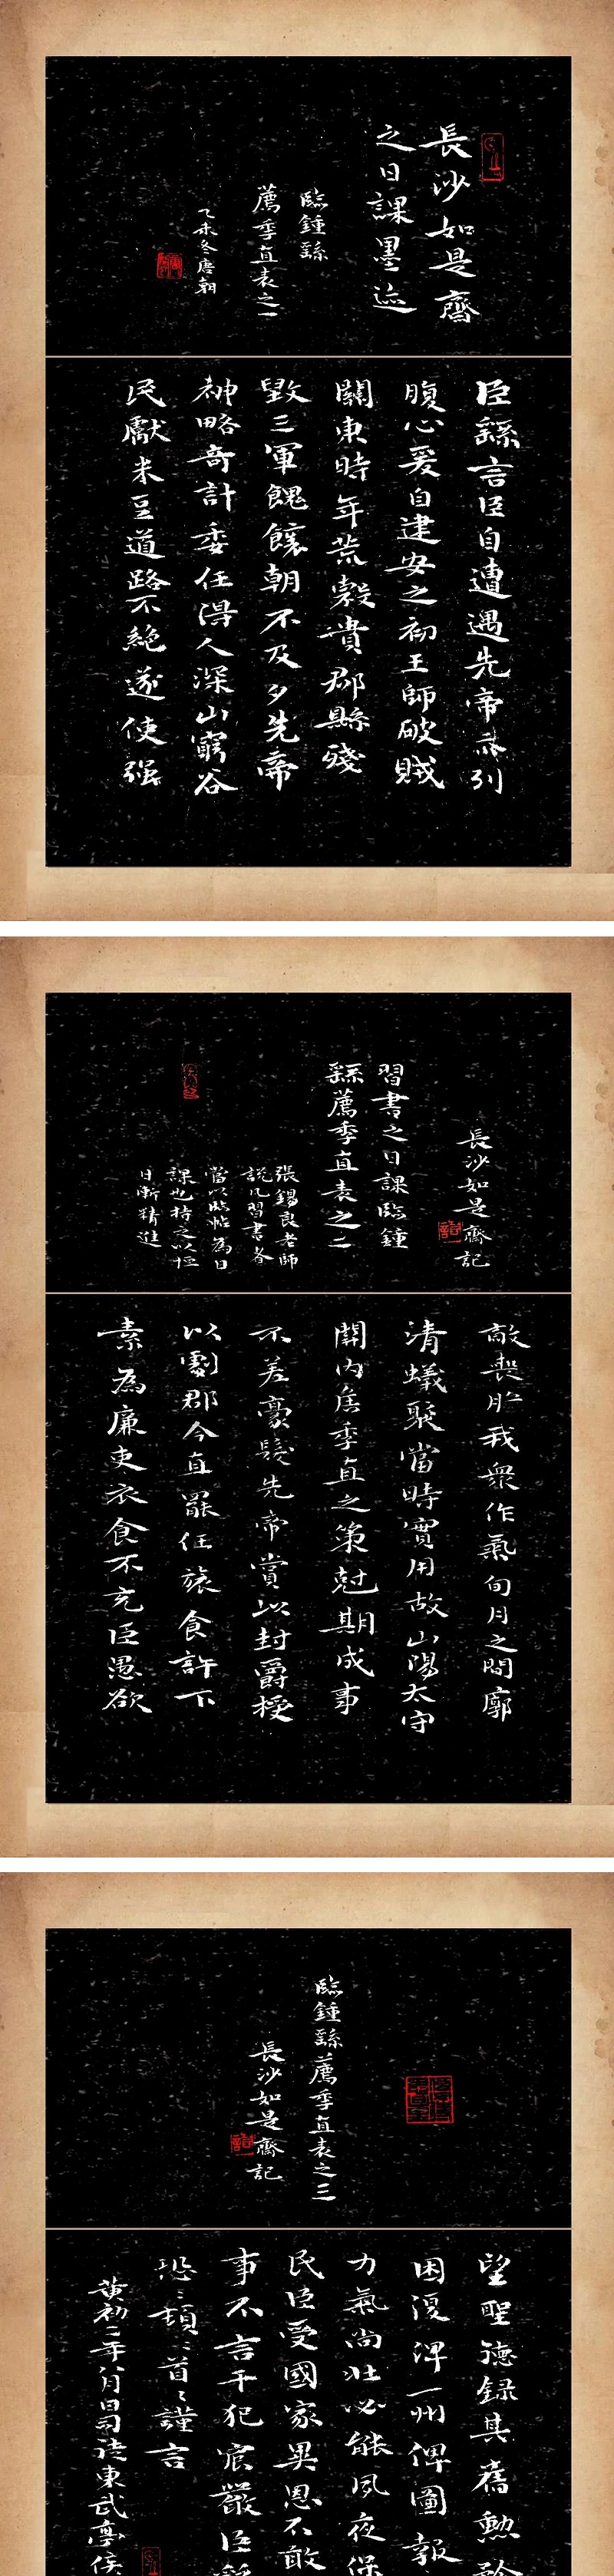 長沙如是齋
之日課墨迹
臨鍾繇
薦季直表之一
乙未冬唐朝
臣繇言臣自遭遇先帝忝列
腹心爰自建安之初王師破賊
關東時年荒穀貴郡縣殘
毀三軍餽饟朝不及夕先帝
神略奇計委任得人深山窮谷
民獻米豆道路不絕遂使强
長沙如是齋記
習書之日課臨鍾
繇薦季直表之二
張錫良老師
說凡習書者
當以臨帖為日
課也持之以恒
日漸精進
敵喪膽我衆作氣旬月之間廓
清蟻聚當時實用故山陽太守
關內侯季直之策尅期成事
不差豪髮先帝賞以封爵授
以劇郡今直罷任旅食許下
素為廉吏衣食不充臣愚欲
臨鍾繇薦季直表之三
長沙如是齋記
望聖德錄其舊勳
困復俾一州俾圖報
力氣尚壯必能夙夜保
民臣受國家異恩不敢
事不言干犯宸嚴臣
恐〻頓〻首〻謹言
黃初二年八月日司徒東武亭侯